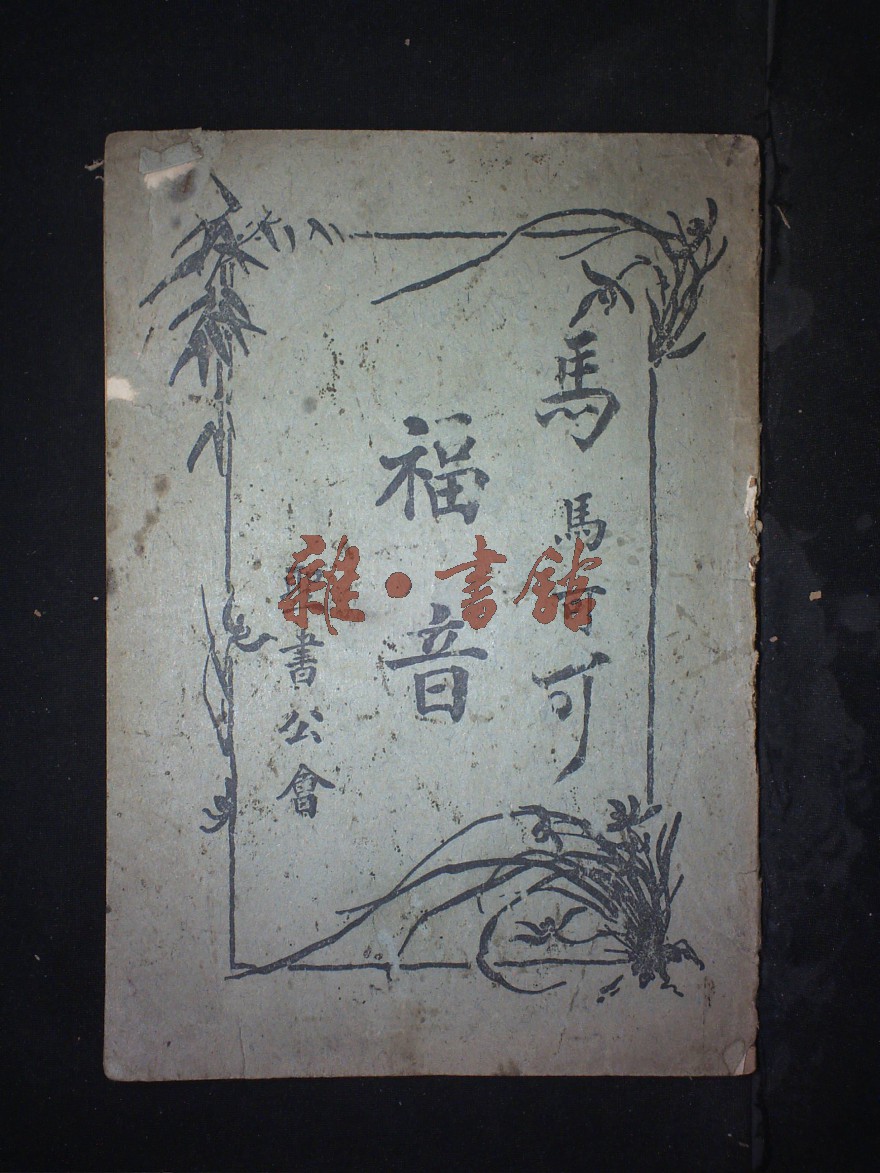 馬馬可
福音
聖書公會
雜·書館